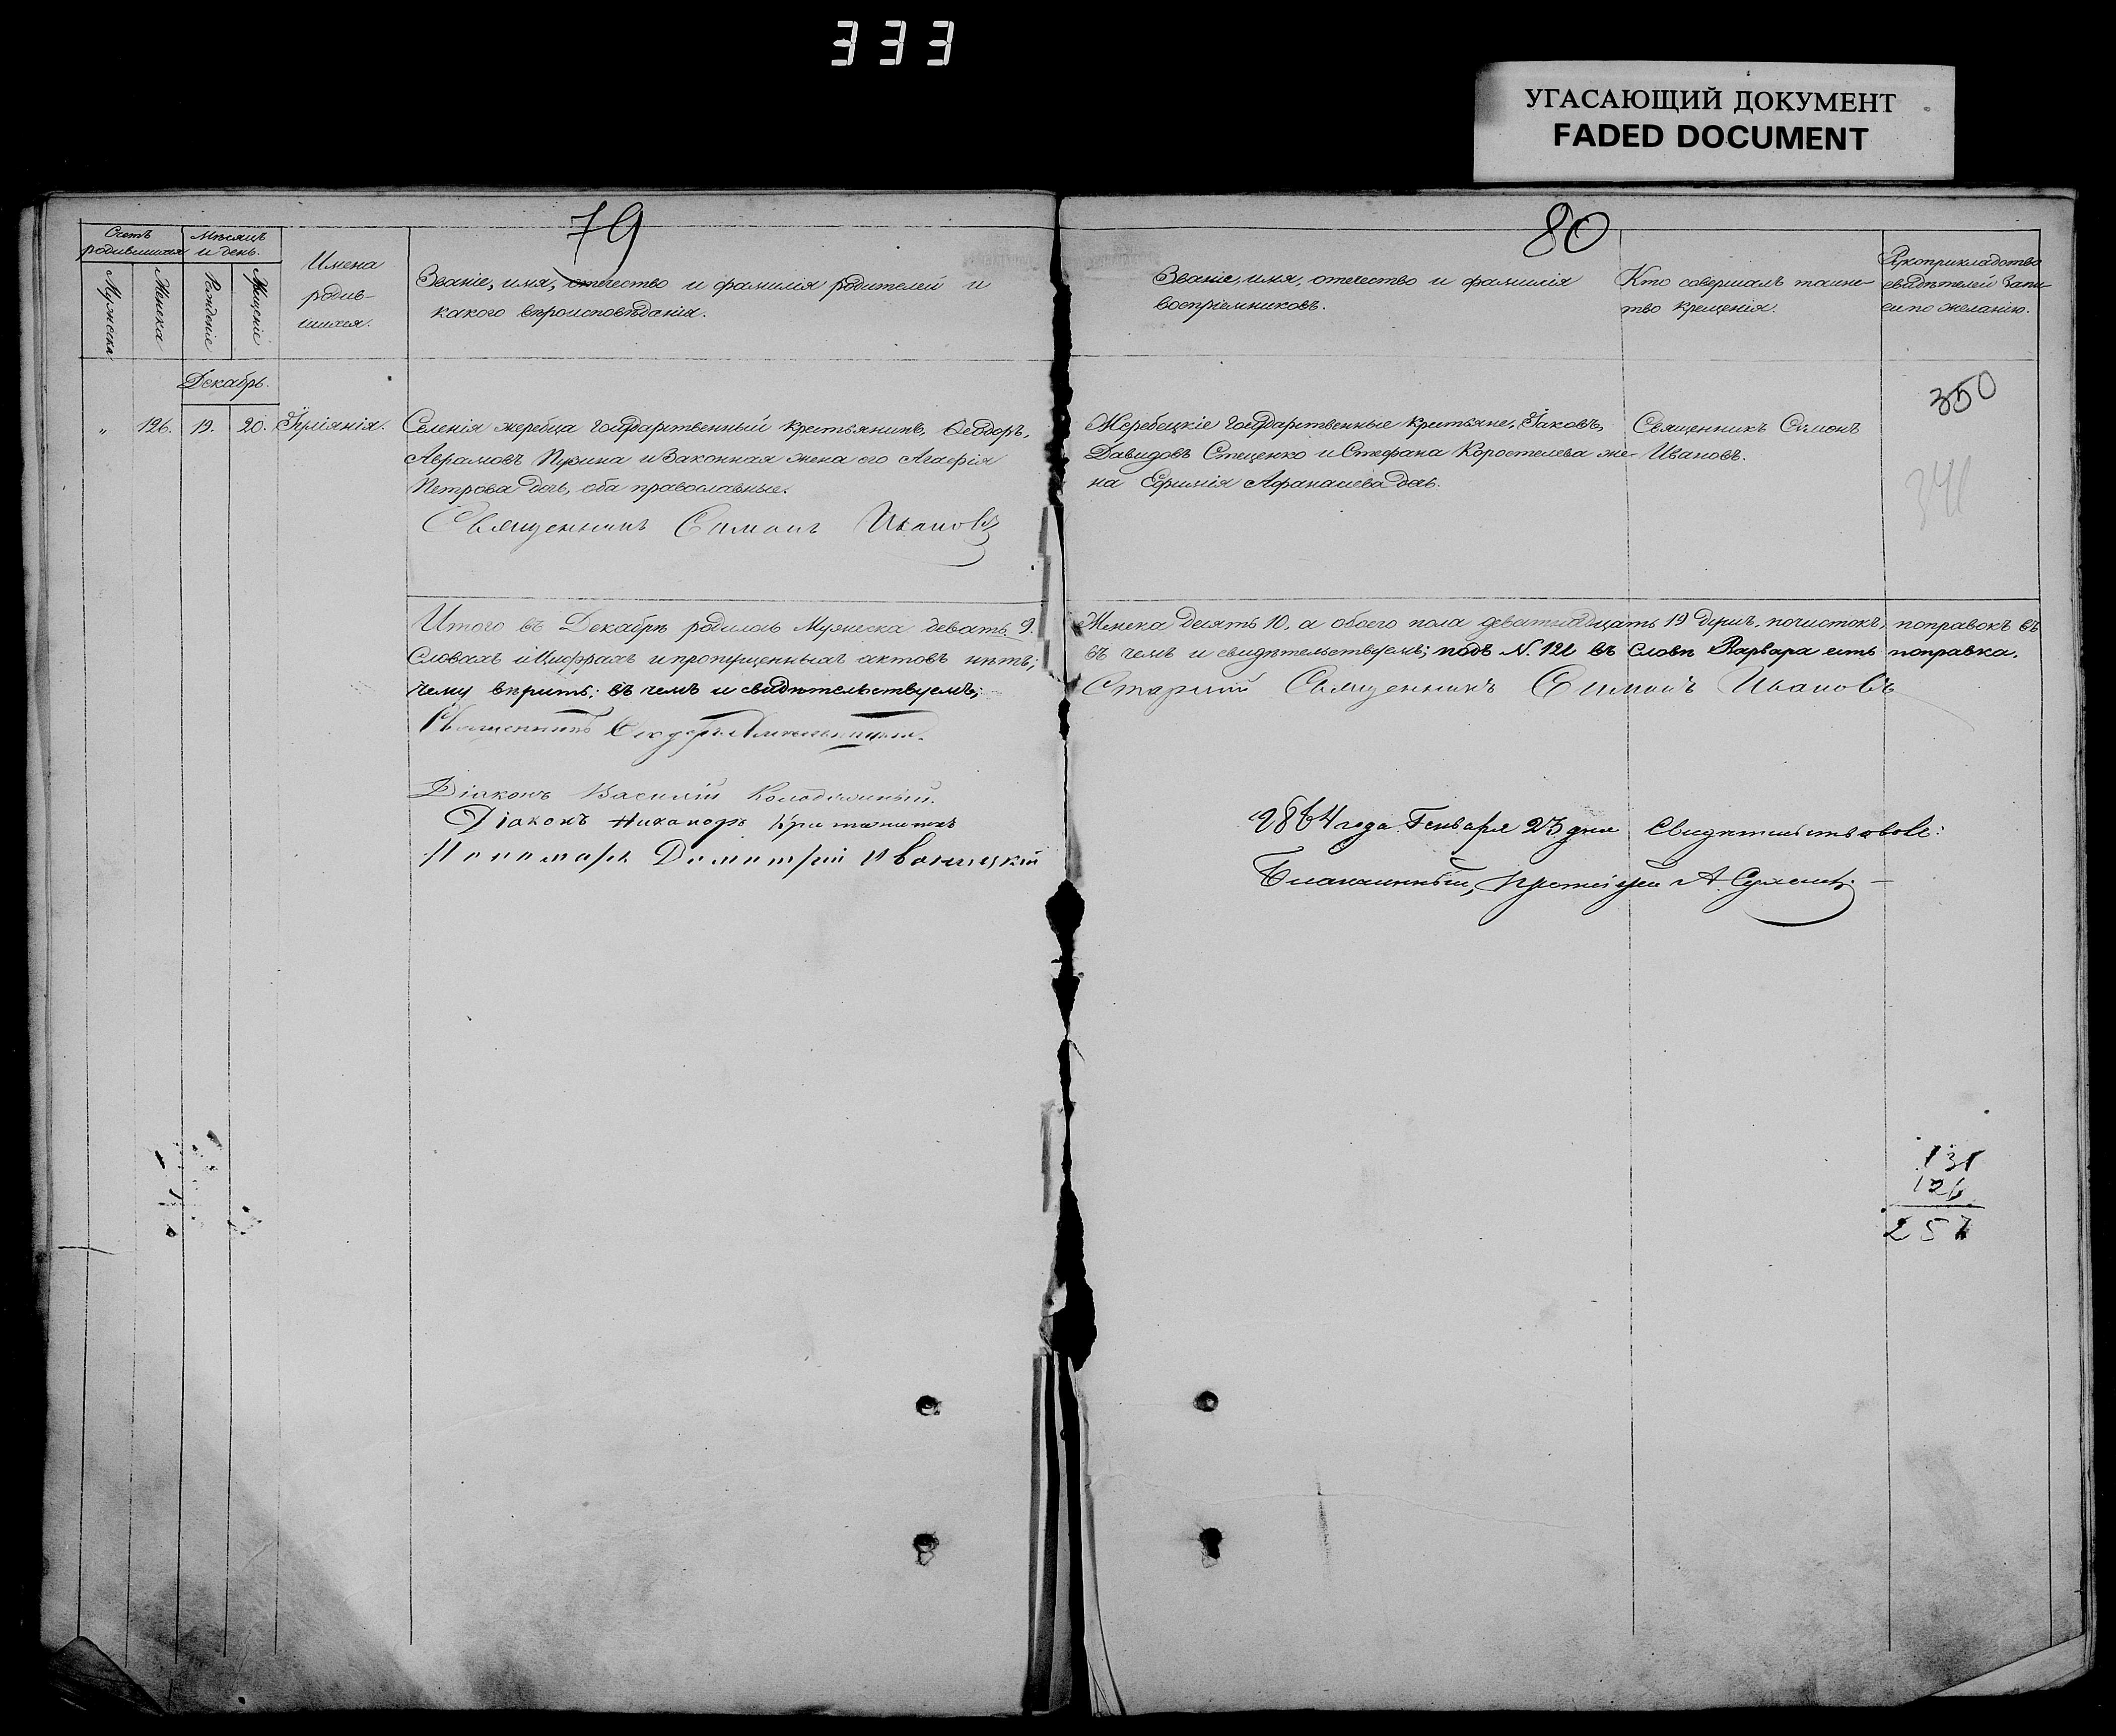 333
УГАСАЮЩИЙ ДОКУМЕНТ
FADED DOCUMENT
79
Счетъ родившихся
Мѣсяцъ и день.
Мужеска
Женска
Рожденіе
Крещеніе
Имена
родив-
шихся.
Званіе, имя, отечество и фамилія родителей и
какого вѣроисповѣданія.
Декабрь.
„ 126. 19. 20. Іуліянія.
Селенія жеребца государственный крестьянинъ, Ѳеодоръ,
Аврамовъ Пузина и законная жена его Агафія
Петрова дочь, оба православные.
Священникъ Симонъ Ивановъ
Итого въ Декабрѣ родилось Мужеска девять 9.
Словахъ и Цифрахъ и пропущенныхъ актовъ нѣтъ;
чему вѣрить: въ чемъ и свидѣтельствуемъ;
Священникъ
Діаконъ Василій
Діаконъ Никаноръ
Пономарь Димитрій
80
Званіе, имя, отечество и фамилія
воспріемниковъ.
Кто совершалъ таинс-
тво крещенія.
Рукоприкладство
свидѣтелей запи-
си по желанію.
350
Жеребецкіе государственные крестьяне, Іаковъ,
Давидовъ Стеценко и Стефана Коростелева же-
на Ефимія Афанасьева дочь.
Священникъ Симонъ
Ивановъ.
341
Женска десять 10. а обоего пола девятнадцать 19 душъ. почистокъ, поправокъ въ
въ чемъ и свидѣтельствуемъ; подъ N. 121 въ словѣ Варвара есть поправка.
Старшій Священникъ Симонъ Ивановъ
1864 года Генваря 23 дня Свидѣтельствовалъ:
Благочинный, Протоіерей А.
131
126
257